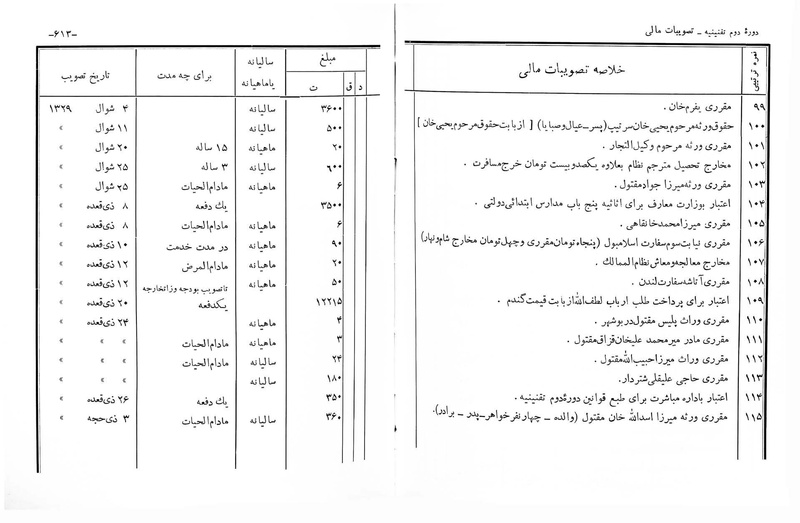 دورهٔ دوم تقنینیه ـ تصویبات مالی
نمره ترتیبی
خلاصه تصویبات مالی
۹۹ مقرری یفرم‌خان .
۱۰۰ حقوق ورثه مرحوم یحیی‌خان سرتیپ (پسرـ عیال وصبایا) [ ازبابت حقوق مرحوم یحیی‌خان ]
۱۰۱ مقرری ورثه مرحوم وکیل‌التجار .
۱۰۲ مخارج تحصیل مترجم نظام بعلاوه یکصدوبیست تومان خرج مسافرت .
۱۰۳ مقرری ورثه میرزا جواد مقتول .
۱۰۴ اعتبار بوزارت معارف برای اثاثیه پنج باب مدارس ابتدائی دولتی .
۱۰۵ مقرری میرزامحمدخانقاهی .
۱۰۶ مقرری نیابت سوم سفارت اسلامبول (پنجاه تومان مقرری وچهل تومان مخارج شام ونهار)
۱۰۷ مخارج معالجه ومعاش نظام الممالک .
۱۰۸ مقرری آتاشه سفارت لندن .
۱۰۹ اعتبار برای پرداخت طلب ارباب لطف‌الله ازبابت قیمت گندم .
۱۱۰ مقرری وراث پلیس مقتول دربوشهر .
۱۱۱ مقرری مادر میرمحمد علیخان قزاق مقتول .
۱۱۲ مقرری وراث میرزا حبیب‌الله مقتول .
۱۱۳ مقرری حاجی علیقلی شتردار.
۱۱۴ اعتبار باداره مباشرت برای طبع قوانین دورهٔ دوم تقنینیه .
۱۱۵ مقرری ورثه میرزا اسدالله خان مقتول (والده ـ چهارنفر خواهرـ پدر ـ برادر).
ـ۶۱۳ـ
مبلغ
د ق ت
سالیانه
یاماهیانه
برای چه مدت
تاریخ تصویب
۳۶۰۰ سالیانه ۴ شوال ۱۳۲۹
۵۰۰ سالیانه ۱۱ شوال »
۲۰ ماهیانه ۱۵ ساله ۲۰ شوال »
۶۰۰ سالیانه ۳ ساله ۲۵ شوال »
۶ ماهیانه مادام‌الحیات ۲۵ شوال »
۳۵۰۰ یك دفعه ۸ ذی‌قعده »
۶ ماهیانه مادام‌الحیات ۸ ذی‌قعده »
۹۰ ماهیانه در مدت خدمت ۱۰ ذی‌قعده »
۲۰ ماهیانه مادام‌المرض ۱۲ ذی‌قعده »
۵۰ ماهیانه تاتصویب بودجه وزاتخارجه ۱۲ ذی‌قعده »
۱۲۲۱۵ یکدفعه ۲۰ ذی‌قعده »
۴ ماهیانه ۲۴ ذی‌قعده »
۳ ماهیانه مادام‌الحیات » » »
۲۴ سالیانه مادام‌الحیات » » »
۱۸۰ سالیانه » » »
۳۵۰ یك دفعه ۲۶ ذی‌قعده »
۳۶۰ سالیانه مادام‌الحیات ۳ ذی‌حجه »